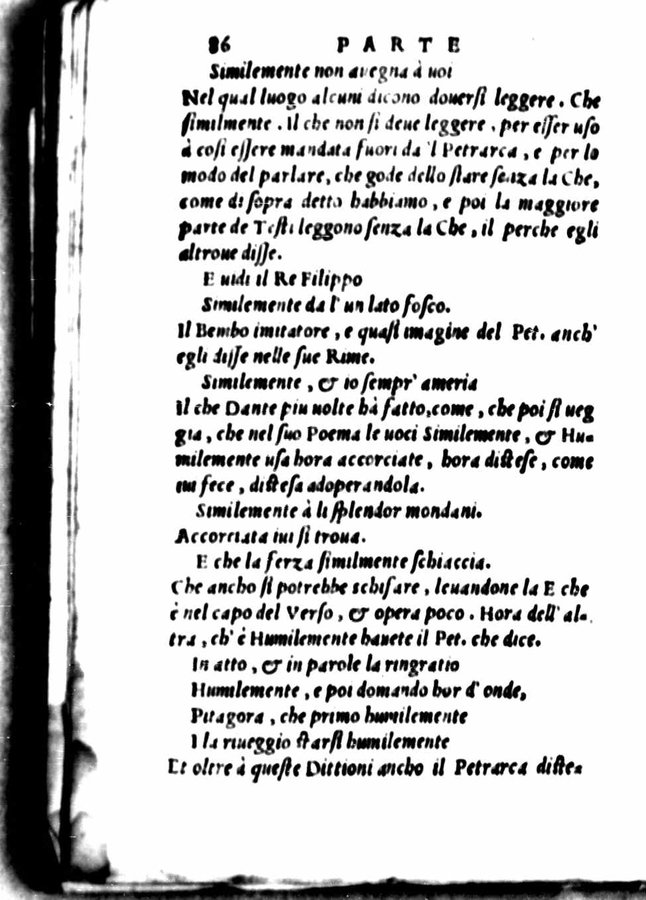 86 PARTE
Similemente non avegna à uoi
Nel qual luogo alcuni dicono douerſi leggere. Che
ſimilmente. Il che non ſi deue leggere, per eſſer uſo
à coſi eſſere mandata fuori da 'l Petrarca, e per lo
modo del parlare, che gode dello ſtare ſenza la Che,
come di ſopra detto habbiamo, e poi la maggiore
parte de Teſti leggono ſenza la Che, il perche egli
altroue diſſe.
E uidi il Re Filippo
Similemente da l' un lato foſco.
Il Bembo imitatore, e quaſi imagine del Pet. anch'
egli diſſe nelle ſue Rime.
Similemente, & io ſempr' ameria
Il che Dante piu uolte hà fatto, come, che poi ſi ueg
gia, che nel ſuo Poema le uoci Similemente, & Hu-
milemente uſa hora accorciate, hora diſteſe, come
iui fece, diſteſa adoperandola.
Similemente à li ſplendor mondani.
Accorciata iui ſi troua.
E che la ferza ſimilmente ſchiaccia.
Che ancho ſi potrebbe schifare, leuandone la E che
è nel capo del Verſo, & opera poco. Hora dell' al-
tra, ch' è Humilemente hauete il Pet. che dice.
In atto, & in parole la ringratio
Humilemente, e poi domando hor d' onde,
Pitagora, che primo humilemente
I la riueggio ſtarſi humilemente
Et oltre à queſte Dittioni ancho il Petrarca diſte-